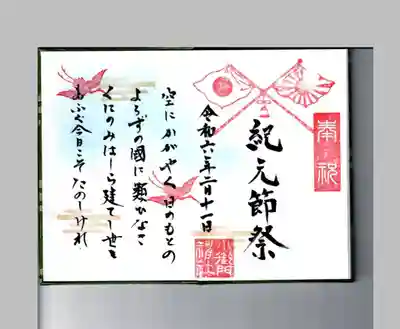 奉祝
紀元節祭
小御門神社
令和六年二月十一日
空にかがやく日のもとの
よろずの國に類ひなき
くにのみはしら建てし世を
あふぐ今日こそたのしけれ